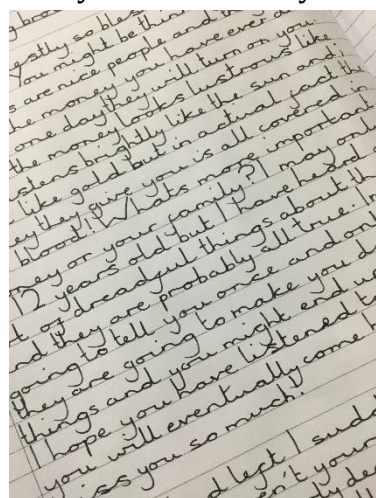 estly so bles
You might be thin
s are nice people and th
he money you have ever
one day they will turn on you.
the money looks lustrous like
istens brightly like the sun and i
like gold but in actual fact the
ey they give you is all covered in
blood! Whats more important
ney or your family? I may only
12 years old but I have heard a
t of dreadful things about th
nd they are probably all true. I
going to tell you once and onl
they are going to make you d
things and you might end u
I hope you have listened to
you will eventually come h
iss you so much!
d left I sudd
n't your
dea